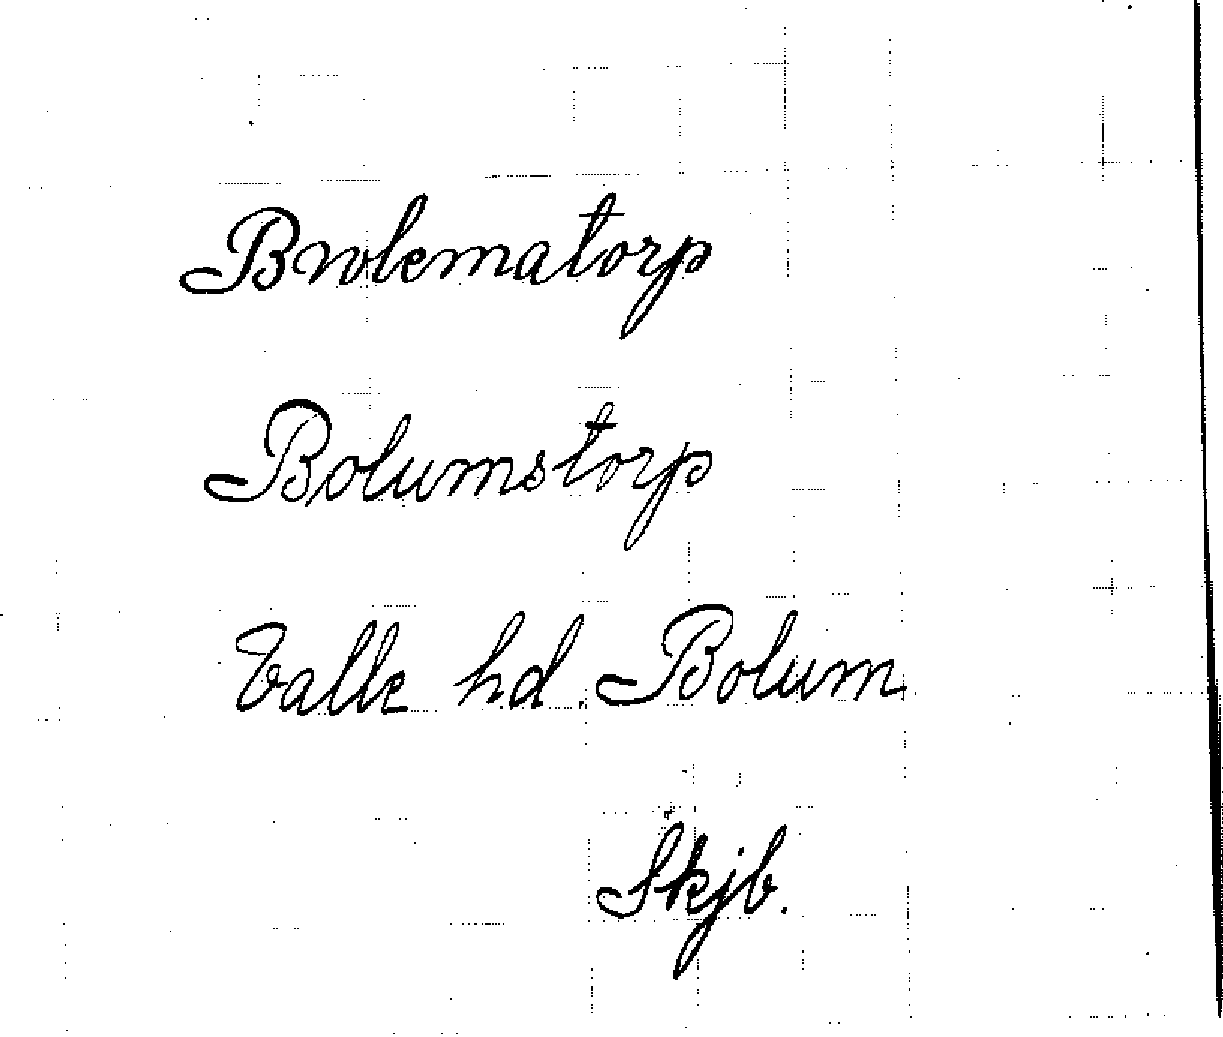 Bwlematorp
Bolumstorp
Valle hd Bolum
Skjb.